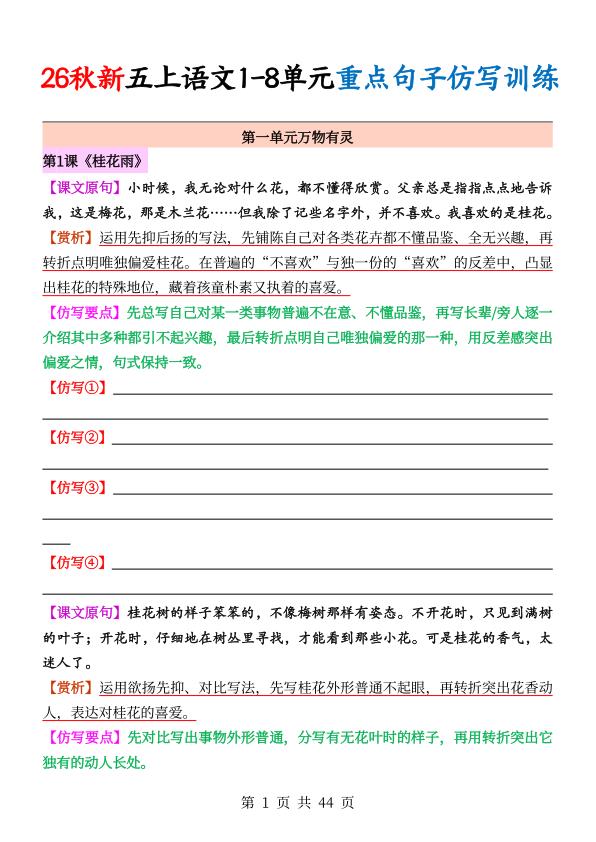 26秋新五上语文1-8单元重点句子仿写训练
第一单元万物有灵
第1课《桂花雨》
【课文原句】小时候，我无论对什么花，都不懂得欣赏。父亲总是指指点点地告诉
我，这是梅花，那是木兰花……但我除了记些名字外，并不喜欢。我喜欢的是桂花。
【赏析】运用先抑后扬的写法，先铺陈自己对各类花卉都不懂品鉴、全无兴趣，再
转折点明唯独偏爱桂花。在普遍的“不喜欢”与独一份的“喜欢”的反差中，凸显
出桂花的特殊地位，藏着孩童朴素又执着的喜爱。
【仿写要点】先总写自己对某一类事物普遍不在意、不懂品鉴，再写长辈/旁人逐一
介绍其中多种都引不起兴趣，最后转折点明自己唯独偏爱的那一种，用反差感突出
偏爱之情，句式保持一致。
【仿写①】
【仿写②】
【仿写③】
【仿写④】
【课文原句】桂花树的样子笨笨的，不像梅树那样有姿态。不开花时，只见到满树
的叶子；开花时，仔细地在树丛里寻找，才能看到那些小花。可是桂花的香气，太
迷人了。
【赏析】运用欲扬先抑、对比写法，先写桂花外形普通不起眼，再转折突出花香动
人，表达对桂花的喜爱。
【仿写要点】先对比写出事物外形普通，分写有无花叶时的样子，再用转折突出它
独有的动人长处。
第 1 页 共 44 页